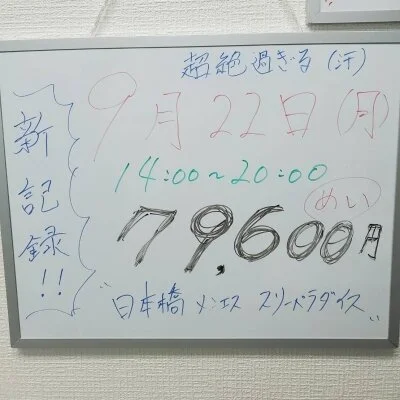 超絶過ぎる(汗)
新記録!!
9月22日(月)
14:00~20:00
めい
79,600円
"日本橋 メンエス スリーパラダイス"